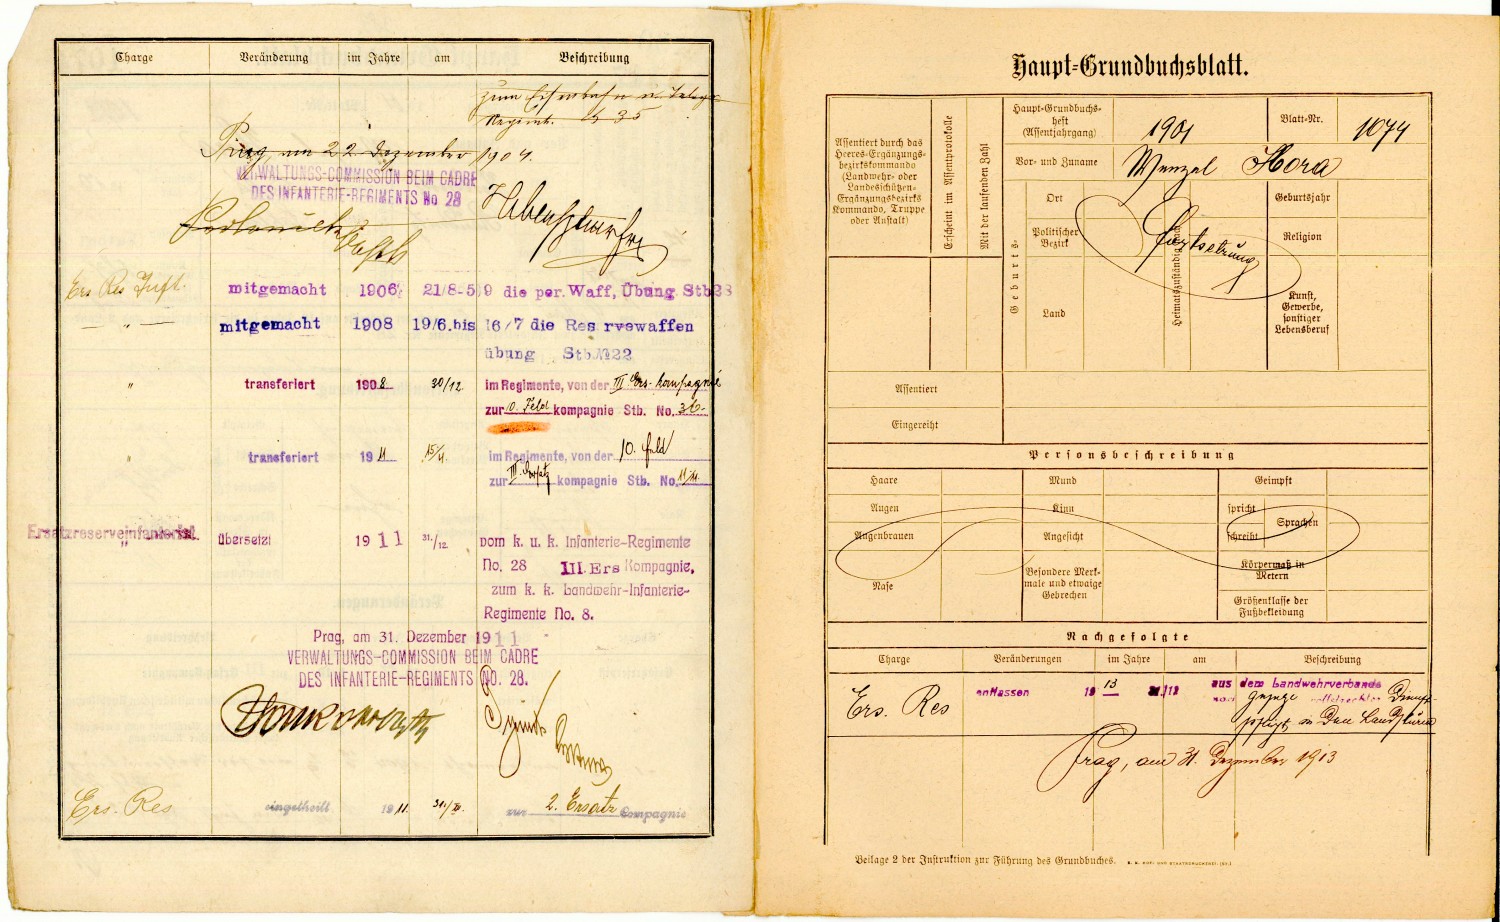 Charge Veränderung im Jahre am Beschreibung
zum Eisenbahn u. Telegr.
Regimt.
Prag, am 22 Dezember 1904.
VERWALTUNGS-COMMISSION BEIM CADRE
DES INFANTERIE-REGIMENTS No 28
Ers Res Inft. mitgemacht 1906 21/8-5/9 die per. Waff, Übung Stb28
" mitgemacht 1908 19/6.bis 16/7 die Res rvewaffen
übung Stb.№22
" transferiert 1908 30/12 im Regimente, von der III Ers-kompagnie
zur 10. Feld kompagnie Stb. No. 36
" transferiert 1911 im Regimente, von der 10. feld
zur III Ersatz kompagnie Stb. No.
Ersatzreserveinfanterist " übersetzt 1911 31./12. vom k. u. k. Infanterie-Regimente
No. 28 III. Ers Kompagnie,
zum k. k. Landwehr-Infanterie-
Regimente No. 8.
Prag, am 31. Dezember 1911
VERWALTUNGS-COMMISSION BEIM CADRE
DES INFANTERIE-REGIMENTS NO. 28.
Ers. Res eingeteilt 1911. zur 2. Ersatz Compagnie
Haupt-Grundbuchsblatt.
Assentiert durch das
Heeres-Ergänzungs-
bezirkskommando
(Landwehr- oder
Landesschützen-
Ergänzungsbezirks
Kommando, Truppe
oder Anstalt)
Erscheint im Assentprotokolle
Mit der laufenden Zahl
Haupt-Grundbuchs-
heft
(Assentjahrgang)
1901
Blatt-Nr.
1074
Vor- und Zuname
Wenzel Hora
Geburts-
Ort
Politischer
Bezirk
Land
Heimatszuständig nach
Fortsetzung
Geburtsjahr
Religion
Kunst,
Gewerbe,
sonstiger
Lebensberuf
Assentiert
Eingereiht
Personsbeschreibung
Haare Mund Geimpft
Augen Kinn spricht Sprachen
Augenbrauen Angesicht schreibt
Nase
Besondere Merk-
male und etwaige
Gebrechen
Körpermaß in
Metern
Größenklasse der
Fußbekleidung
Nachgefolgte
Charge Veränderungen im Jahre am Beschreibung
Ers. Res entlassen 1913 31./12 aus dem Landwehrverbande
nach vollstreckter Dienst-
pflicht in den Landsturm
Prag, am 31. Dezember 1913
Beilage 2 der Instruktion zur Führung des Grundbuches.